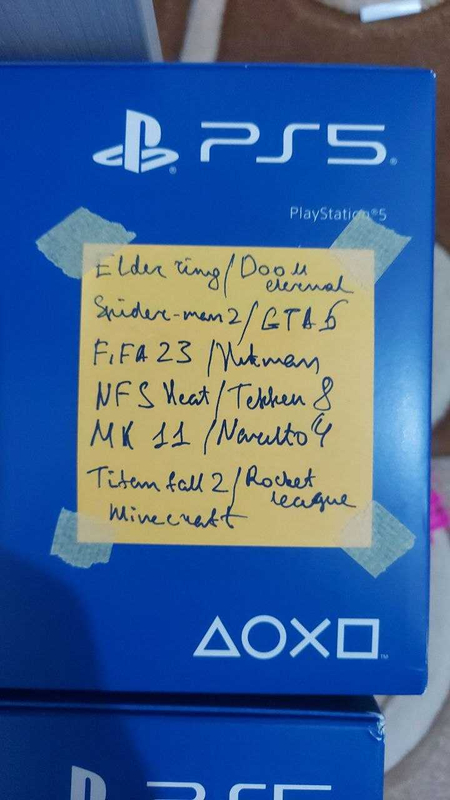 PS5
PlayStation®5
Elder ring/Doom
eternal
Spider-man2/GTA5
FiFA 23/Hitman
NFS Heat/Tekken 8
MK 11/Narutto 4
Titan fall 2/Rocket
league
Minecraft
PS5